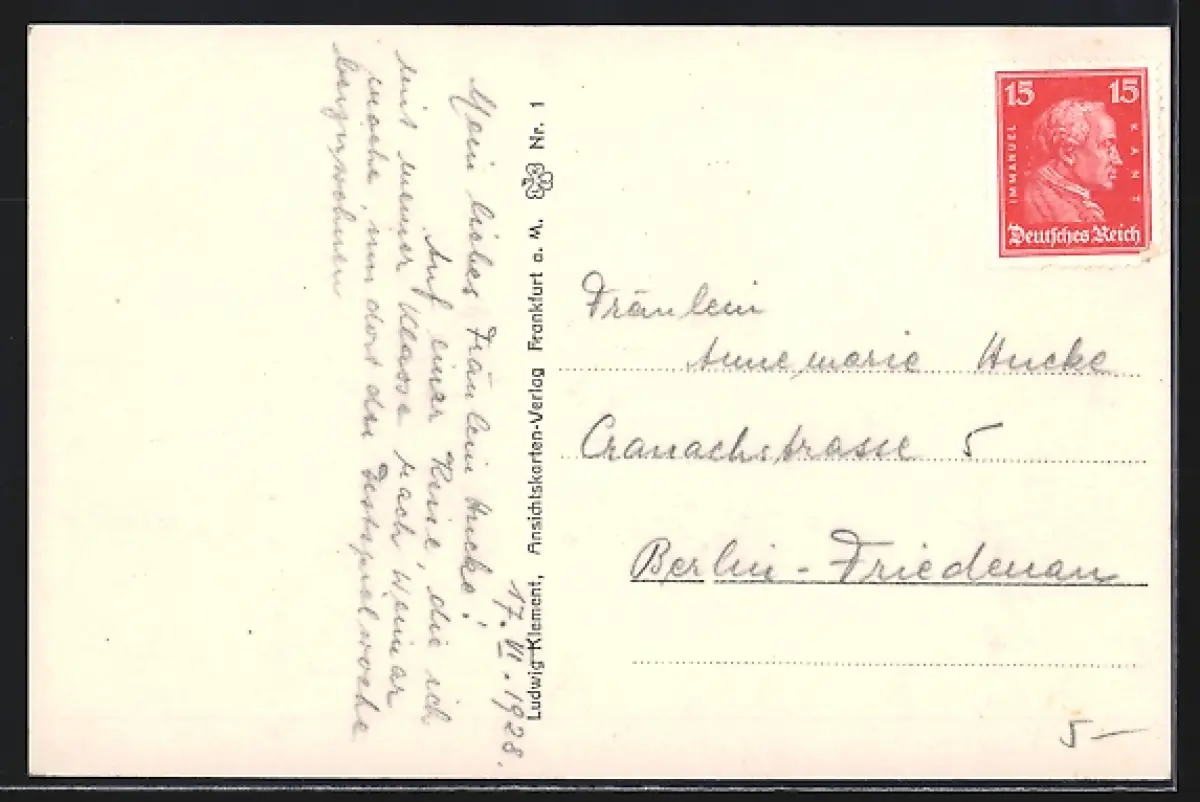 17. VI. 1928.
Mein liebes Fräulein Hucke!
Auf einer Reise, die ich
mit meiner Klasse nach Weimar
mache, um dort der Festspielwoche
beizuwohnen
Ludwig Klement, Ansichtskarten-Verlag Frankfurt a. M. Nr. 1
15 15
IMMANUEL KANT
Deutsches Reich
Fräulein
Annemarie Hucke
Cranachstrasse 5
Berlin-Friedenau
5 —